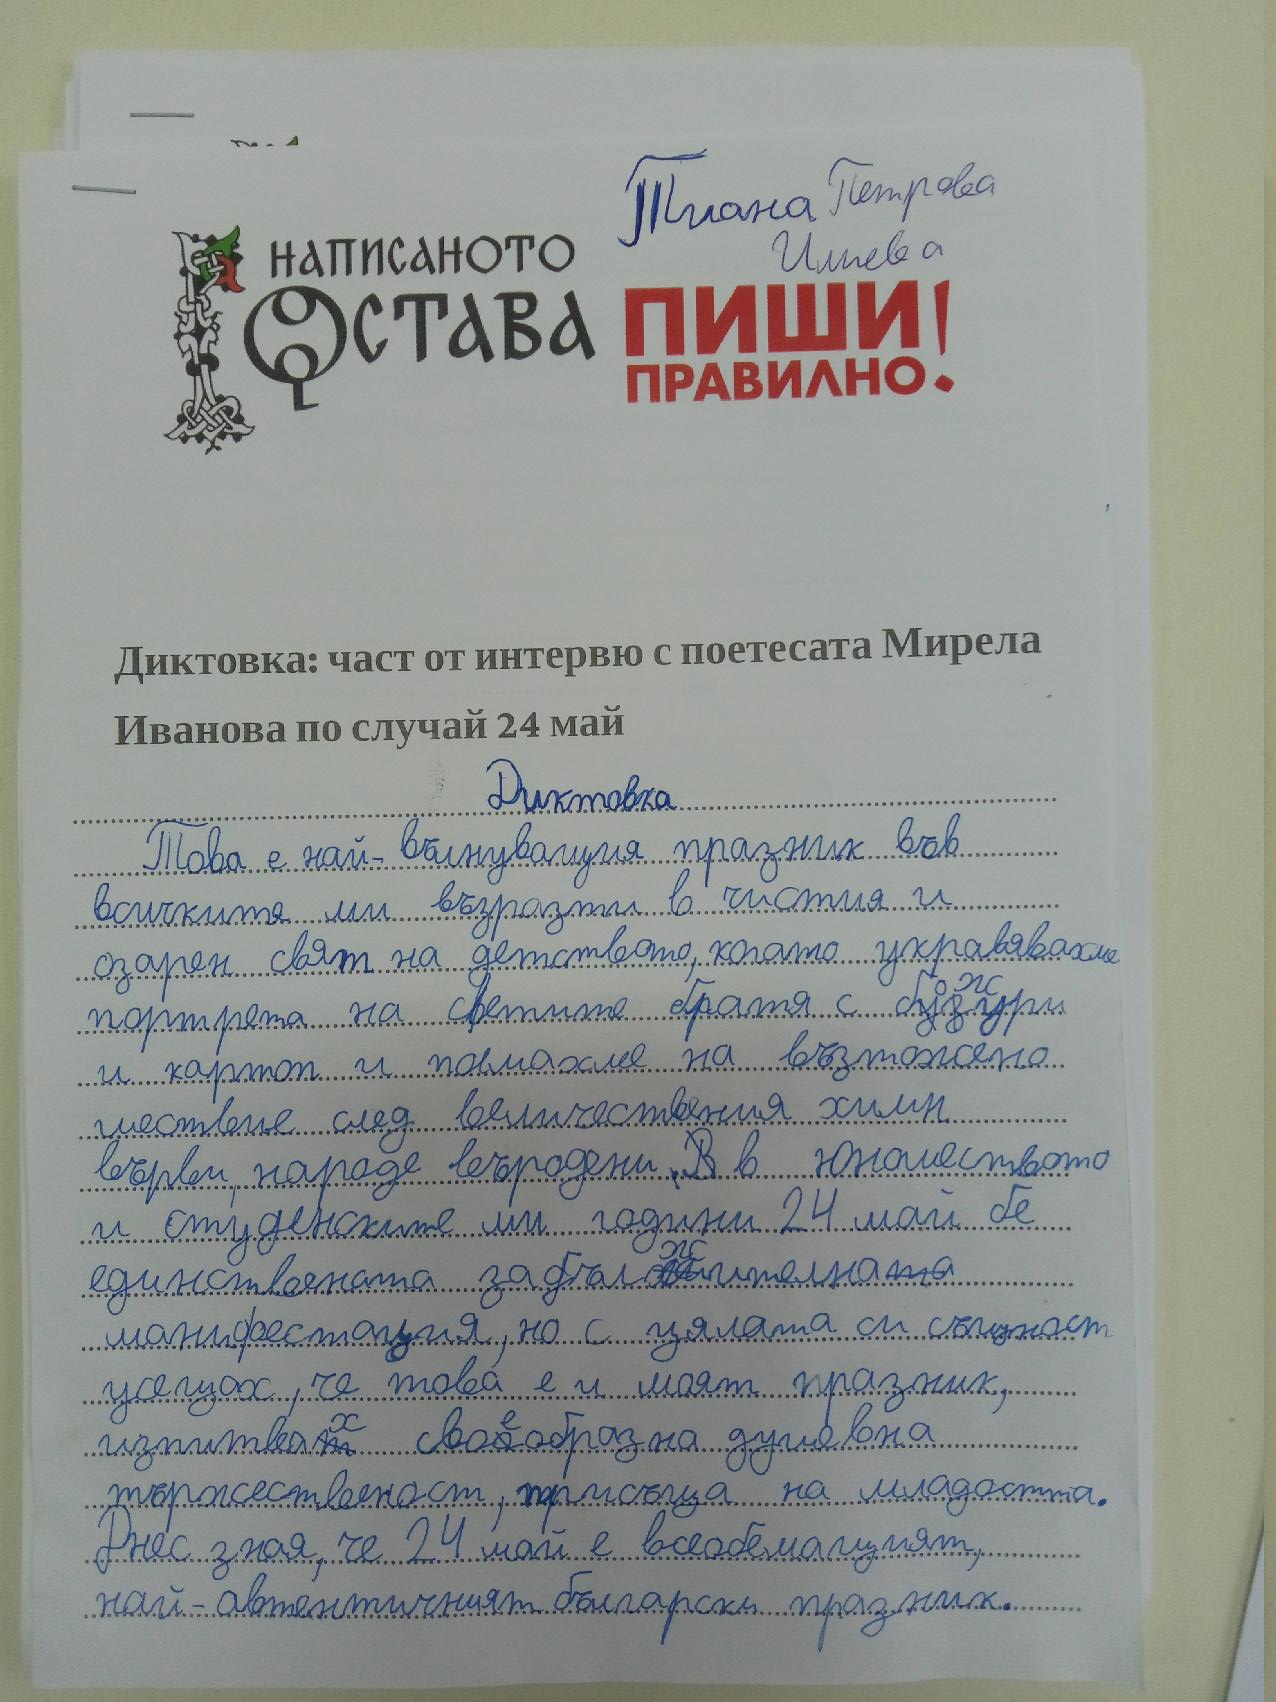 Тиана Петрова
Илиева
НАПИСАНОТО
ОСТАВА
ПИШИ!
ПРАВИЛНО.
Диктовка: част от интервю с поетесата Мирела
Иванова по случай 24 май
Диктовка
Това е най-вълнуващия празник във
всичките ми възразти в чистия и
озарен свят на детството, когато укравявахме
портрета на светите братя с божури
и картон и помахме на възтожено
шествие след величествения химн
върви, народе възродени. В в юношеството
и студенските ми години 24 май бе
единствената задължителна
манифестация, но с цялата си същност
усещах, че това е и моят празник,
изпитвах своеобразна душевна
тържественост, присъща на младостта.
Днес зная, че 24 май е всеобемащият,
най-автентичният български празник.